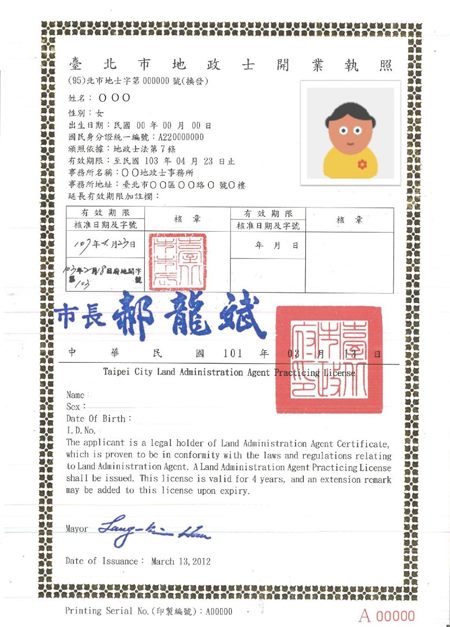 臺北市地政士開業執照
(95)北市地士字第000000號(換發)
姓名：○○○
性別：女
出生日期：民國 00 年 00 月 00 日
國民身分證統一編號：A220000000
頒照依據：地政士法第7條
有效期限：至民國 103 年 04 月 23 日止
事務所名稱：○○地政士事務所
事務所地址：臺北市○○區○○路○號○樓
延長有效期限加註欄：
有效期限 核准日期及字號 核章 有效期限 核准日期及字號 核章
年 月 日
市長 郝龍斌
中華民國 101 年 03 月 13 日
Taipei City Land Administration Agent Practicing License
Name：
Sex：
Date Of Birth：
I.D.No.
The applicant is a legal holder of Land Administration Agent Certificate,
which is proven to be in conformity with the laws and regulations relating
to Land Administration Agent. A Land Administration Agent Practicing License
shall be issued. This license is valid for 4 years, and an extension remark
may be added to this license upon expiry.
Mayor
Date of Issuance： March 13,2012
Printing Serial No.(印製編號)：A00000
A 00000